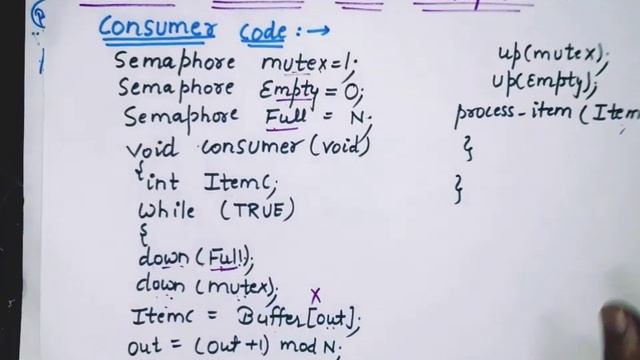 Consumer Code :→
Semaphore mutex=1;
Semaphore Empty = 0;
Semaphore Full = N;
void consumer(void)
{
int ItemC;
while (TRUE)
{
down(Full);
down(mutex);
X
ItemC = Buffer[out];
out = (out+1) mod N;
up(mutex);
up(Empty);
process-item (Item
}
}